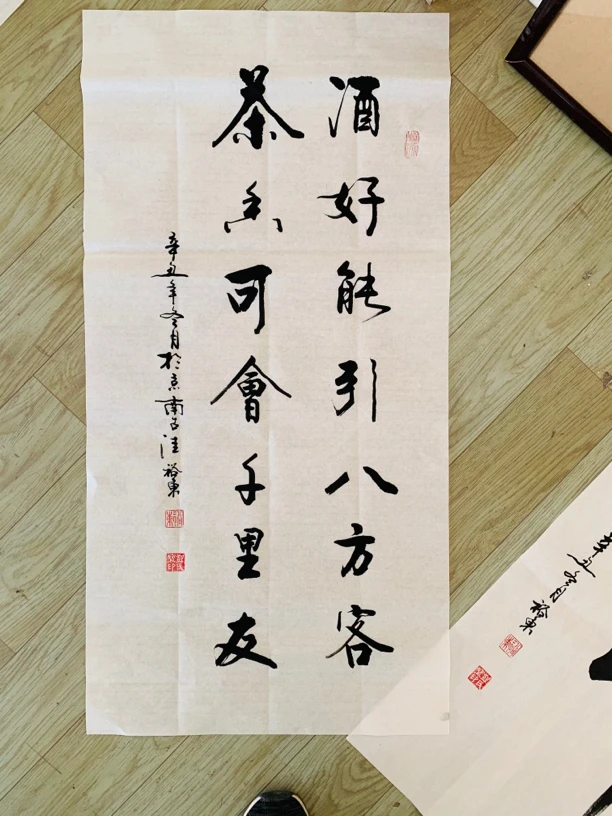 酒好能引八方客
茶香可會千里友
辛丑年冬月於京南古洼裕東
辛丑冬月裕東